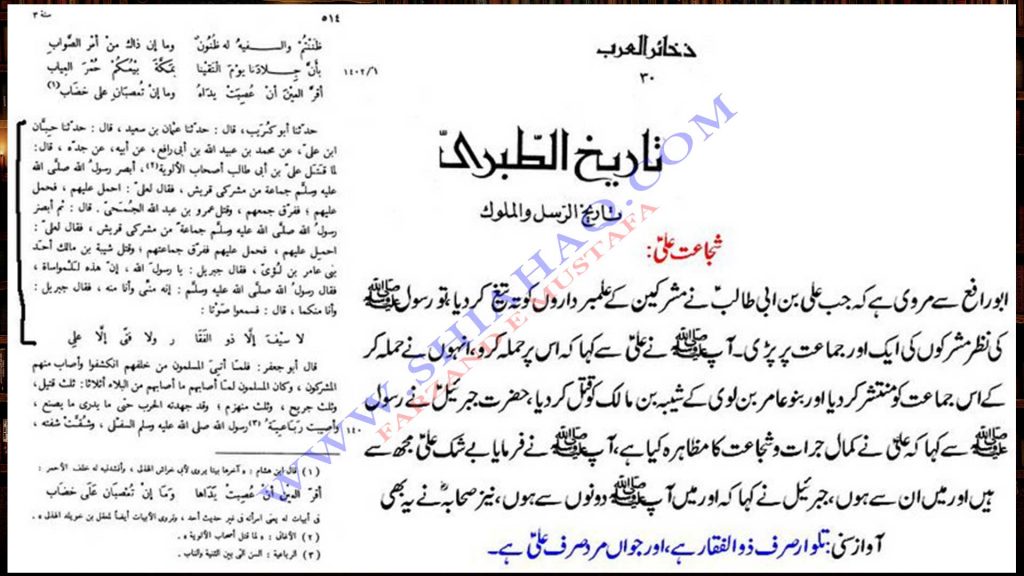 ٥١٤
سنة ٣
ظَنَنْتُمْ والسفيهُ له ظُنُونٌ وما إن ذاك من أمْر الصَّوابِ
بأنَّ جِلادَنا يومَ التَقَيْنا بمكَّةَ بَيْعُكُمْ حُمْرَ العِيابِ
١٤٠٢/١
أقرَّ العَيْنَ أنْ عُصِبَتْ يداهُ وما إنْ تُعصَبانِ على خضَابِ (١)
حدثنا أبو كُرَيب، قال: حدثنا عثمان بن سعيد، قال: حدثنا حِبّان
ابن علىّ، عن محمد بن عبيد الله بن أبى رافع، عن أبيه، عن جدّه، قال:
لما قتل علىّ بن أبى طالب أصحاب الألوية (٢)، أبصر رسولُ الله صلَّى الله
عليه وسلَّم جماعة من مشركى قريش، فقال لعلىّ: احمل عليهم، فحمل
عليهم؛ ففرّق جمعهم، وقتل عمرو بن عبد الله الجُمحىّ. قال: ثم أبصر
رسولُ الله صلى الله عليه وسلَّم جماعة من مشركى قريش، فقال لعلىّ:
احمِل عليهم، فحمل عليهم ففرّق جماعتهم؛ وقتل شيبة بن مالك أحد
بنى عامر بن لُؤىّ، فقال جبريل: يا رسول الله، إنّ هذه للمواساة،
فقال رسولُ الله صلى الله عليه وسلَّم: إنه منِّى وأنا منه، فقال جبريل:
وأنا منكما، قال: فسمعوا صوتًا:
لا سَيْفَ إلَّا ذو الفَقَا رِ ولا فتًى إلَّا على
قال أبو جعفر: فلمَّا أتىَ المسلمون من خلفهم انكشفوا وأصاب منهم
المشركون، وكان المسلمون لمَّا أصابهم ما أصابهم من البلاء أثلاثًا: ثلث قتيل،
وثلث جريح، وثلث منهزم؛ وقد جهدته الحرب حتى ما يدرى ما يصنع،
وأصيبت رَباعيةُ (٣) رسول الله صلى الله عليه وسلم السفلَى، وشُقَّت شفته،
(١) قال ابن هشام:
أقرَّ العَيْنَ أنْ عُصِبَتْ يداها وما إنْ تُعصَبانِ عَلَى خِضَابِ
(٢) الأغانى: «لما قتل أصحاب الألوية».
(٣) الرباعية: السن التى بين الثنية والناب.
ذخائر العرب
٣٠
تاريخ الطبرى
تاريخ الرسل والملوك
شجاعت علیؑ:
ابو رافع سے مروی ہے کہ جب علی بن ابی طالبؑ نے مشرکین کے علمبرداروں کو تہ تیغ کر دیا، تو رسول ﷺ
کی نظر مشرکوں کی ایک اور جماعت پر پڑی۔ آپ ﷺ نے علیؑ سے کہا کہ اس پر حملہ کرو، انہوں نے حملہ کر
کے اس جماعت کو منتشر کر دیا اور بنو عامر بن لوی کے شیبہ بن مالک کو قتل کر دیا، حضرت جبرئیلؑ نے رسول
ﷺ سے کہا کہ علیؑ نے کمال جرات و شجاعت کا مظاہرہ کیا ہے، آپ ﷺ نے فرمایا بے شک علیؑ مجھ سے
ہیں اور میں ان سے ہوں، جبرئیل نے کہا کہ اور میں آپ ﷺ دونوں سے ہوں، نیز صحابہؓ نے یہ بھی
آواز سنی: تلوار صرف ذوالفقار ہے، اور جواں مرد صرف علیؑ ہے۔
WWW.SHIAHAQ.COM
FARZAND E MUSTAFA